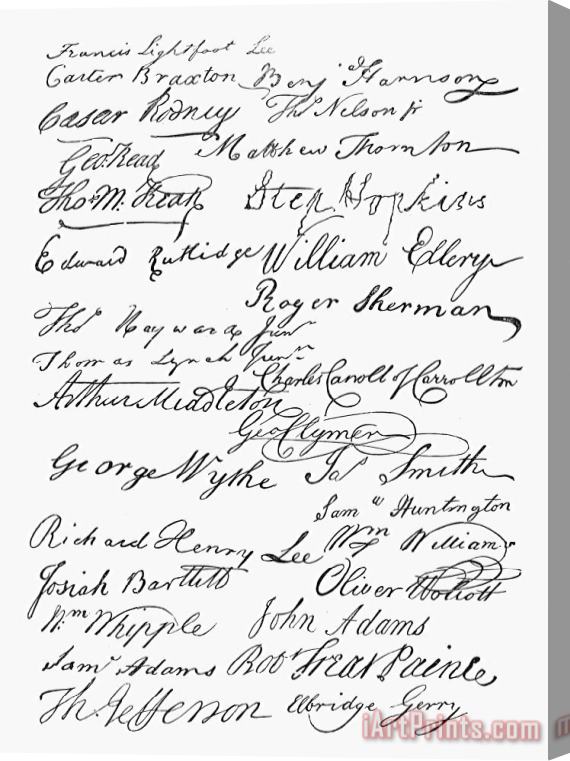 Francis Lightfoot Lee
Carter Braxton Benj Harrison
Casar Rodney Thos Nelson jr
Geo. Read Matthew Thornton
Tho M. Kean Step. Hopkins
Edward Rutlidge William Ellery
Roger Sherman
Thos Hayward Junr
Thomas Lynch Junr
Charles Carroll of Carrollton
Arthur Middleton
Geo Clymer
George Wythe Jas Smith
Saml Huntington
Richard Henry Lee Wm Williams
Josiah Bartlett Oliver Wolcott
Wm Whipple John Adams
Saml Adams Robt Treat Paine
Th. Jefferson Elbridge Gerry
iArtPrints.com